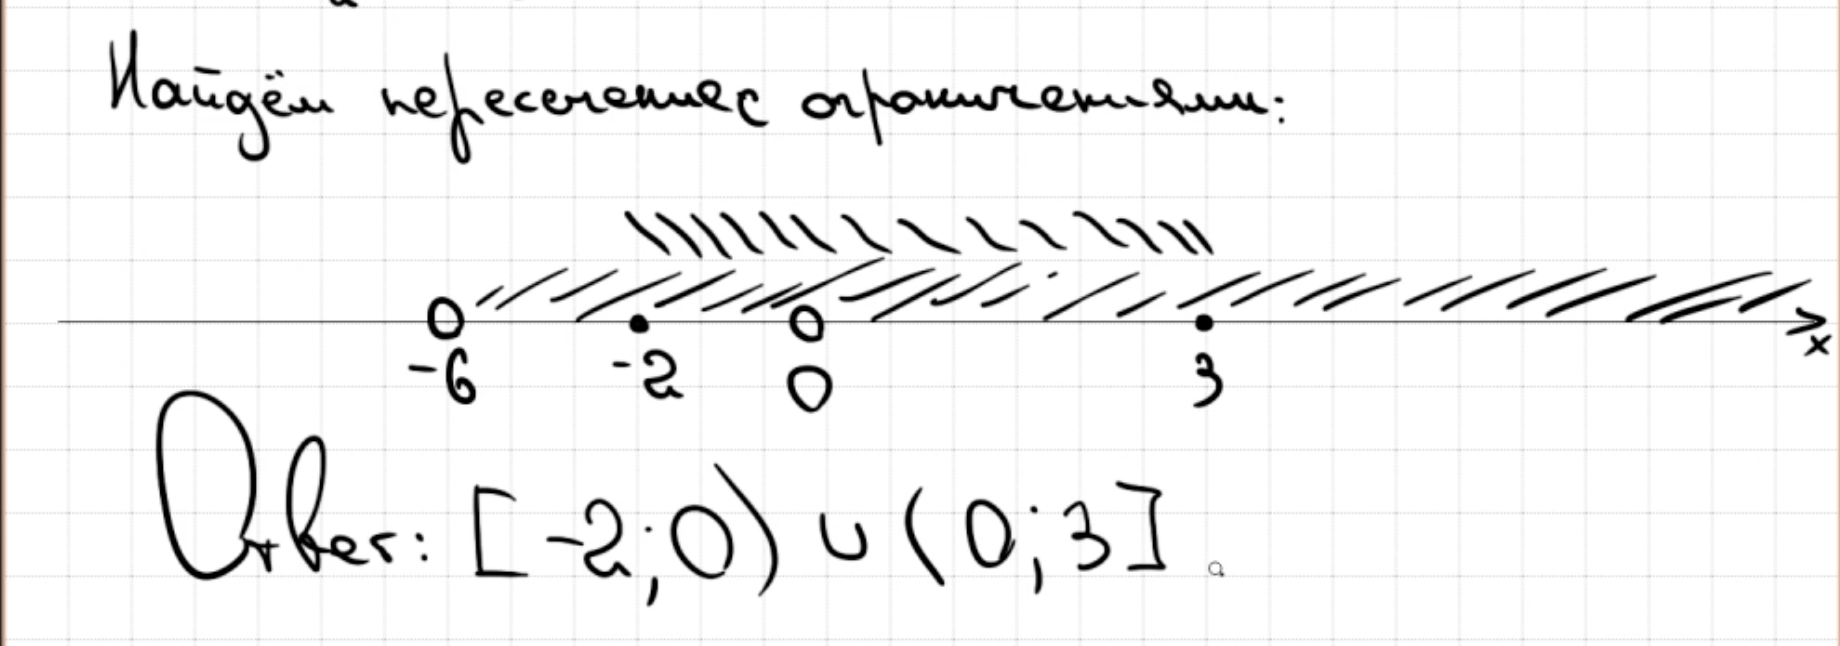 Найдём пересечение с ограничениями:
-6 -2 0 3 x
Ответ: [-2;0) ∪ (0;3]